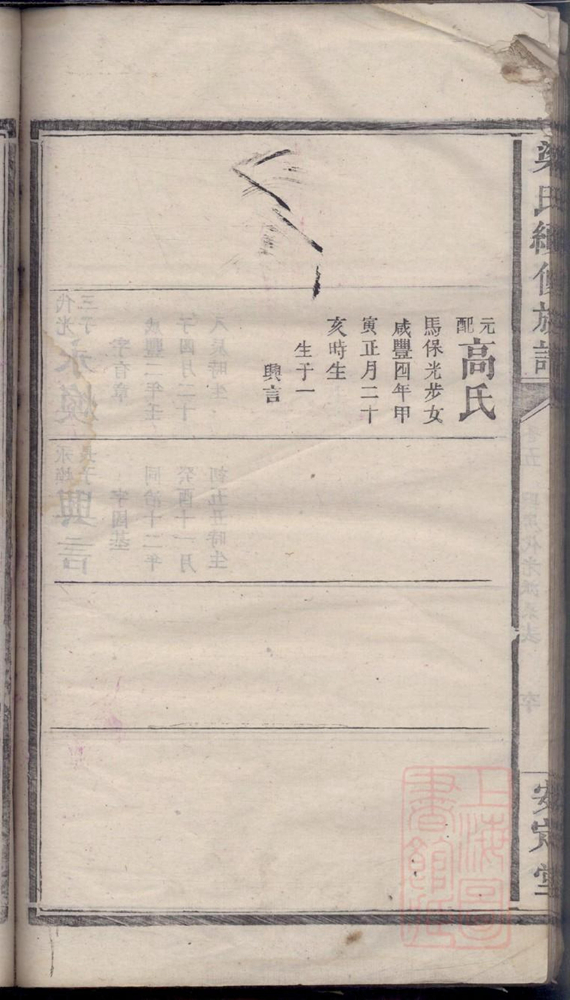 梁氏續修族譜
安定堂
元配高氏
馬保光步女
咸豐四年甲
寅正月二十
亥時生
生子一
興言
上海圖
書館藏